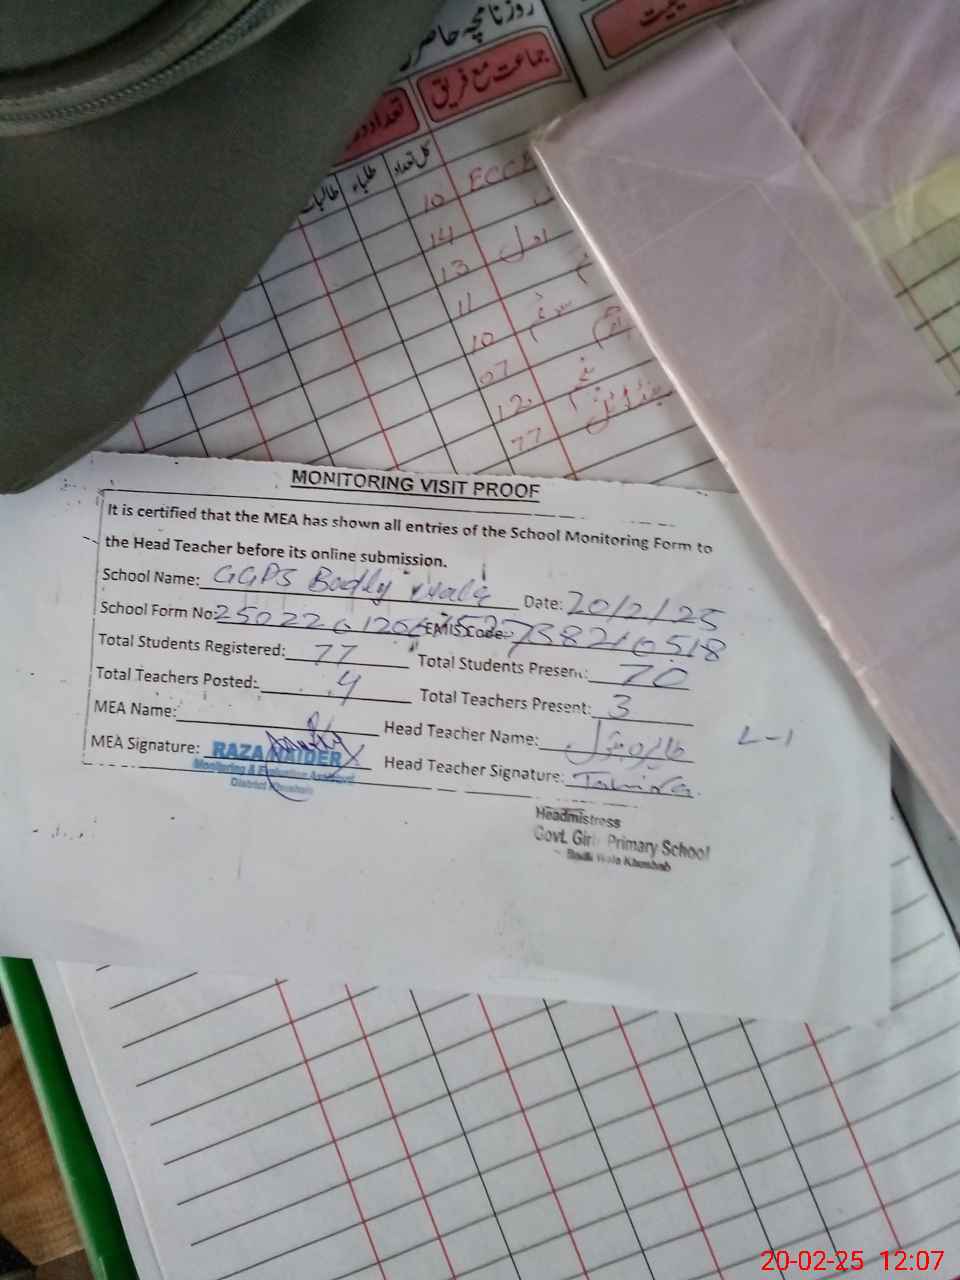 روزنامچہ حاضر
جماعت مع فریق
تعداد
کل تعداد
طلباء
طالبات
10 ECCE
14
13 اول
11
10 سوئم
07
12 پنجم
77
MONITORING VISIT PROOF
It is certified that the MEA has shown all entries of the School Monitoring Form to
the Head Teacher before its online submission.
School Name: GGPS Badly wala Date: 20/2/25
School Form No: EMIS Code: 38210518
Total Students Registered: 77 Total Students Present: 70
Total Teachers Posted: 4 Total Teachers Present: 3
MEA Name: Head Teacher Name: L-1
MEA Signature: RAZA HAIDER Head Teacher Signature: Tahira
Monitoring & Evaluation Assistant
District Khushab
Headmistress
Govt. Girls Primary School
Badli Wala Khushab
20-02-25 12:07